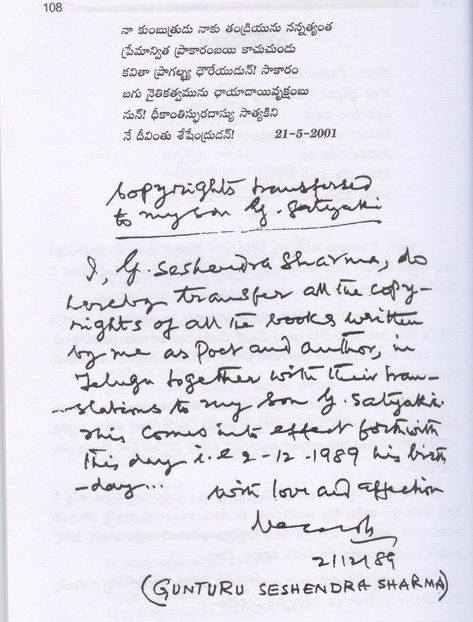 108
నా కుంబుత్రుడు నాకు తండ్రియును నన్నత్యంత
ప్రేమాన్విత ప్రాకారంబయి కాచుచుండు
కవితా ప్రాగల్భ్య ధౌరేయుడున్! సాకారం
బగు నైతికత్వమును ఛాయాదాయివృక్షంబు
నున్! ధీకాంతిస్ఫురదాస్యు సాత్యకిని
నే దీవింతు శేషేంద్రుడన్! 21-5-2001
Copyrights transfersed
to my son G. Satyaki
I, G. Seshendra Sharma, do
hereby transfer all the copy-
rights of all the books written
by me as Poet and author, in
Telugu together with their tran-
-slations to my son G. Satyaki.
This comes into effect forthwith
this day i.e 2-12-1989 his birth
-day...
with love and affection
2/12/89
(GUNTURU SESHENDRA SHARMA)